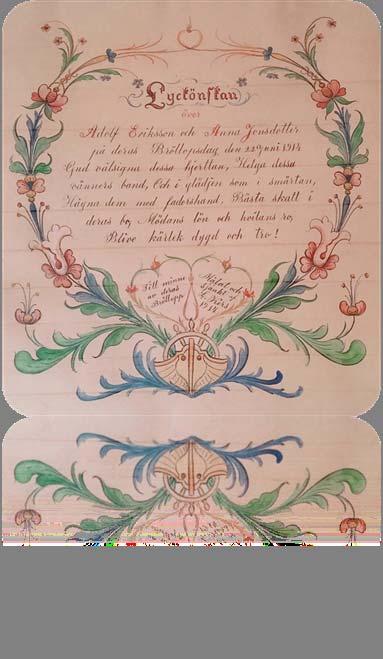 Lyckönskan
över
Adolf Eriksson och Anna Jonsdotter
på deras Bröllopsdag den 22 juni 1914
Gud välsigna dessa hjerttan, Helga dessa
vänners band, Och i glädjen som i smärtan,
Hägna dem med fadershand, Bästa skatt i
deras bo, Mödans lön och hvilans ro,
Blive kärlek dygd och tro!
Till minne
av deras
Bröllopp
Målat och
sjänkt af
1914